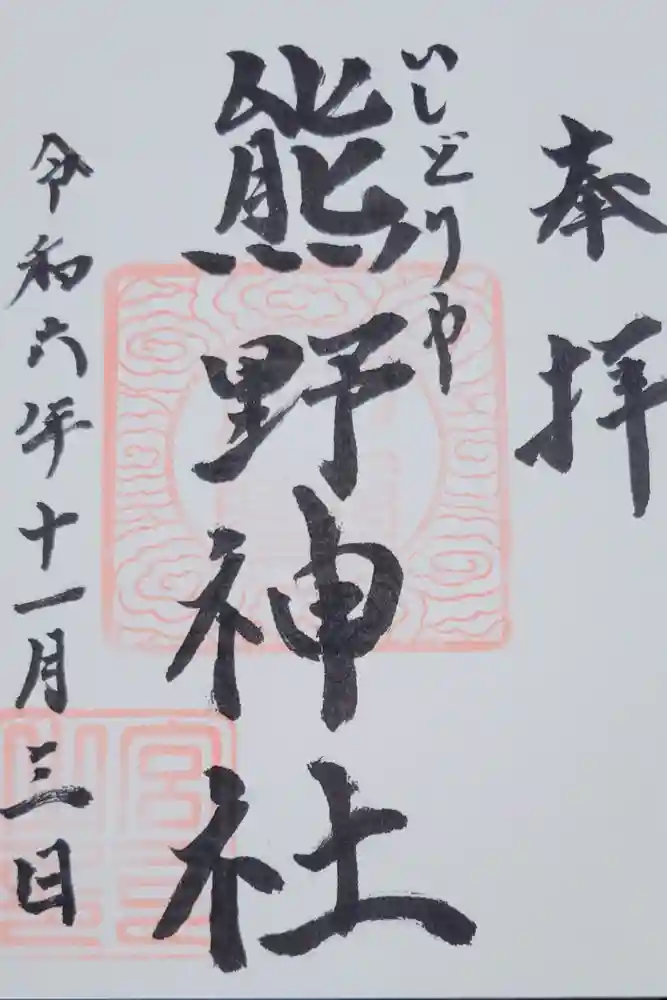 奉拝
いしどりや
熊野神社
令和六年十一月三日